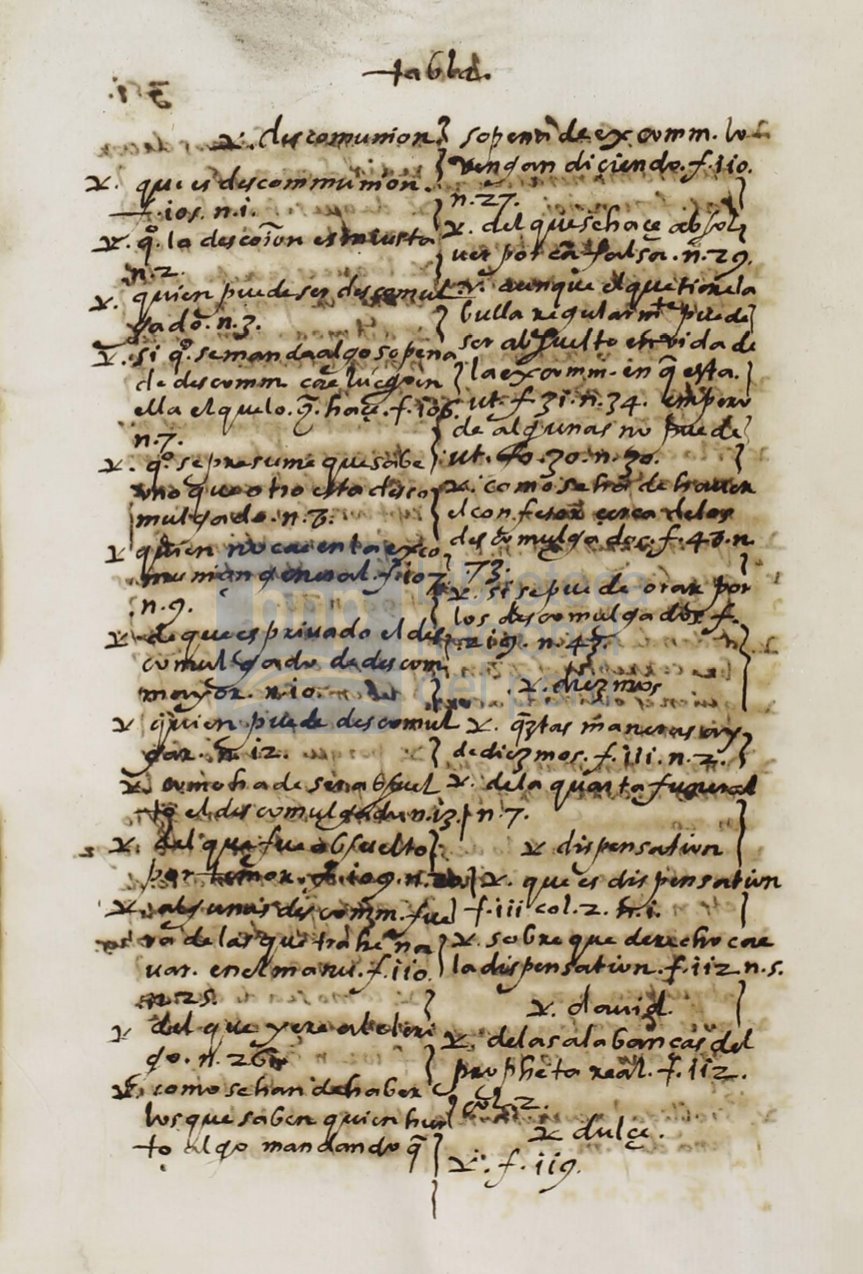 tabla.
v. descomunion
v. que es descommunion.
f. 108. n. 1.
v. qº. la descoion es iniusta
n. 2.
v. quien puede ser descomul
gado. n. 3.
v. si qº. se manda algo so pena
de descomm. cae luego en
ella el que lo. q̃. haçe. f. 106.
n. 7.
v. qº. se presume que sabe
uno que otro esta desco
mulgado. n. 8.
v quien no ca en ta exco
munion general. f. 107
n. 9.
v de que es priuado el des
comulgado de descom
mayor. n. 10.
v quien puede descomul
gar. n. 12.
v. como ha de ser absuel
to el descomulgado. n. 13.
v. del que fue absuelto
por temor. f. 109. n.
v. algunas descomm. fue
ra de las que trahe na
uar. en el manu. f. 110.
n. 25.
v del que yere al cleri
go. n. 26
v. como se han de haber
los que saben quien hur
to algo mandando q̃
so pena de excomm. lo
vengan diçiendo. f. 110.
n. 27.
v. del que se haçe absol
uer por cã falsa. n. 29.
v. aunque el que tiene la
bulla regularmte puede
ser absuelto en vida de
la excomm. en q̃ esta.
ut. f. 31. n. 34. empero
de algunas no puede
ut. fo. 30. n. 30.
v. como se ha de hauer
el confesor cerca de los
descomulgados. f. 48. n.
73.
v. si se puede orar por
los descomulgados f.
219. n. 47.
v. diezmos
v. q̃tas maneras ay
de diezmos. f. 111. n. 2.
v. de la quarta funeral
n. 7.
v dispensation
v. que es dispensation
f. 111 col. 2. n. 1.
v. sobre que derecho cae
la dispensation. f. 112 n. 5.
v. dauid.
v. de las alabanças del
propheta real. f. 112.
col. 2.
v dulçe.
v. f. 119.